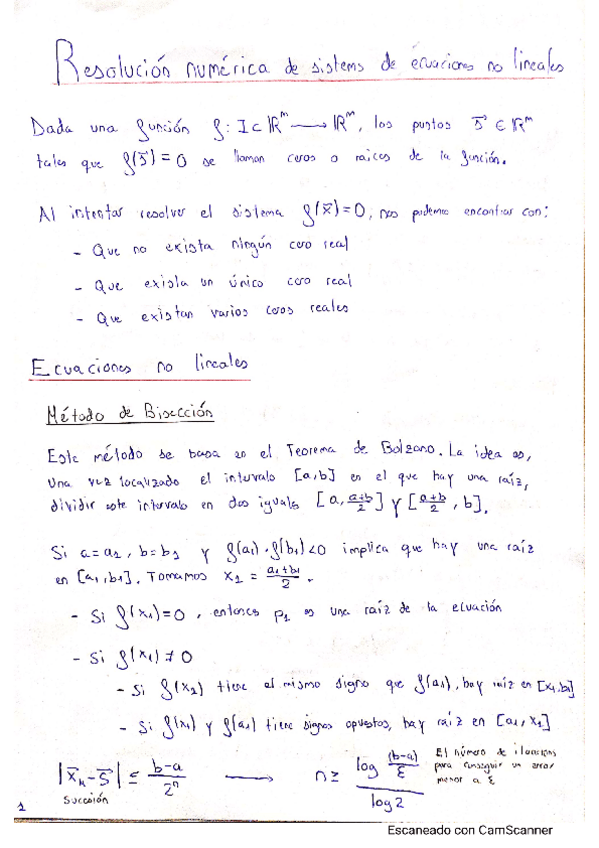 Resolución numérica de sistems de ecuaciones no lineales
Dada una función f: I ⊂ ℝᵐ ⟶ ℝᵐ, los puntos s⃗ ∈ ℝᵐ
tales que f(s⃗) = 0 se llaman ceros o raices de la función.
Al intentar resolver el sistema f(x⃗) = 0, nos podemos encontrar con:
- Que no exista ningún cero real
- Que exista un único cero real
- Que existan varios ceros reales
Ecuaciones no lineales
Método de Bisección
Este método se basa en el Teorema de Bolzano. La idea es,
una vez localizado el intervalo [a,b] en el que hay una raíz,
dividir este intervalo en dos iguals [a, (a+b)/2] y [(a+b)/2, b].
Si a = a₁, b = b₁ y f(a₁)·f(b₁)<0 implica que hay una raíz
en [a₁,b₁]. Tomamos x₁ = (a₁+b₁)/2.
- Si f(x₁)=0, entonces p₁ es una raíz de la ecuación
- Si f(x₁) ≠ 0
- Si f(x₁) tiene el mismo signo que f(a₁), hay raíz en [x₁,b₁]
- Si f(x₁) y f(a₁) tiene signos opuestos, hay raíz en [a₁, x₁]
|x⃗ₙ - s⃗| ≤ (b-a)/2ⁿ ⟶ n ≥ log((b-a)/ε)/log 2 El número de iteracions
para conseguir un error
menor a ε
Sucesión
1
Escaneado con CamScanner